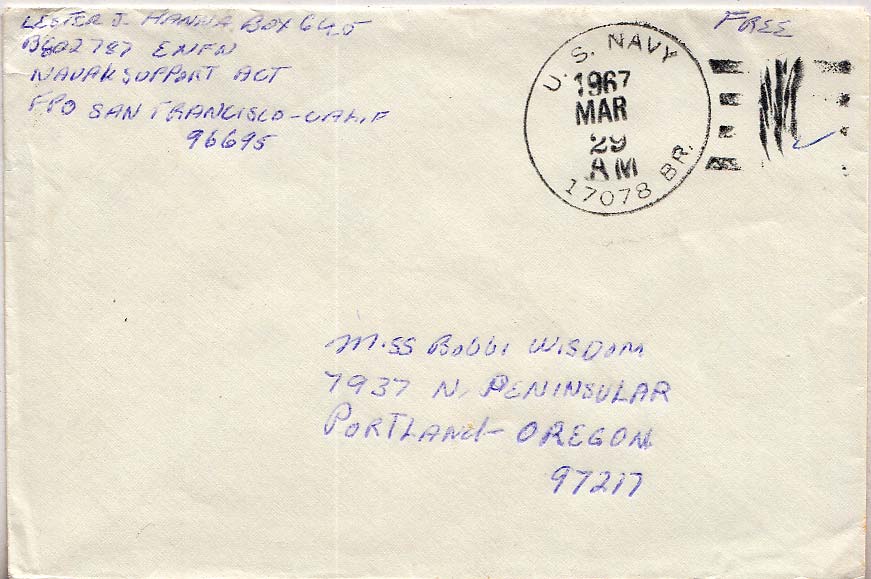 LESTER J. HANNA BOX 645
B802787 ENFN
NAVAL SUPPORT ACT
FPO SAN FRANCISCO - CALIF
96695
FREE
U.S. NAVY
1967
MAR
29
AM
17078 BR.
Miss Bobbi Wisdom
7937 N. PENINSULAR
PORTLAND - OREGON
97217